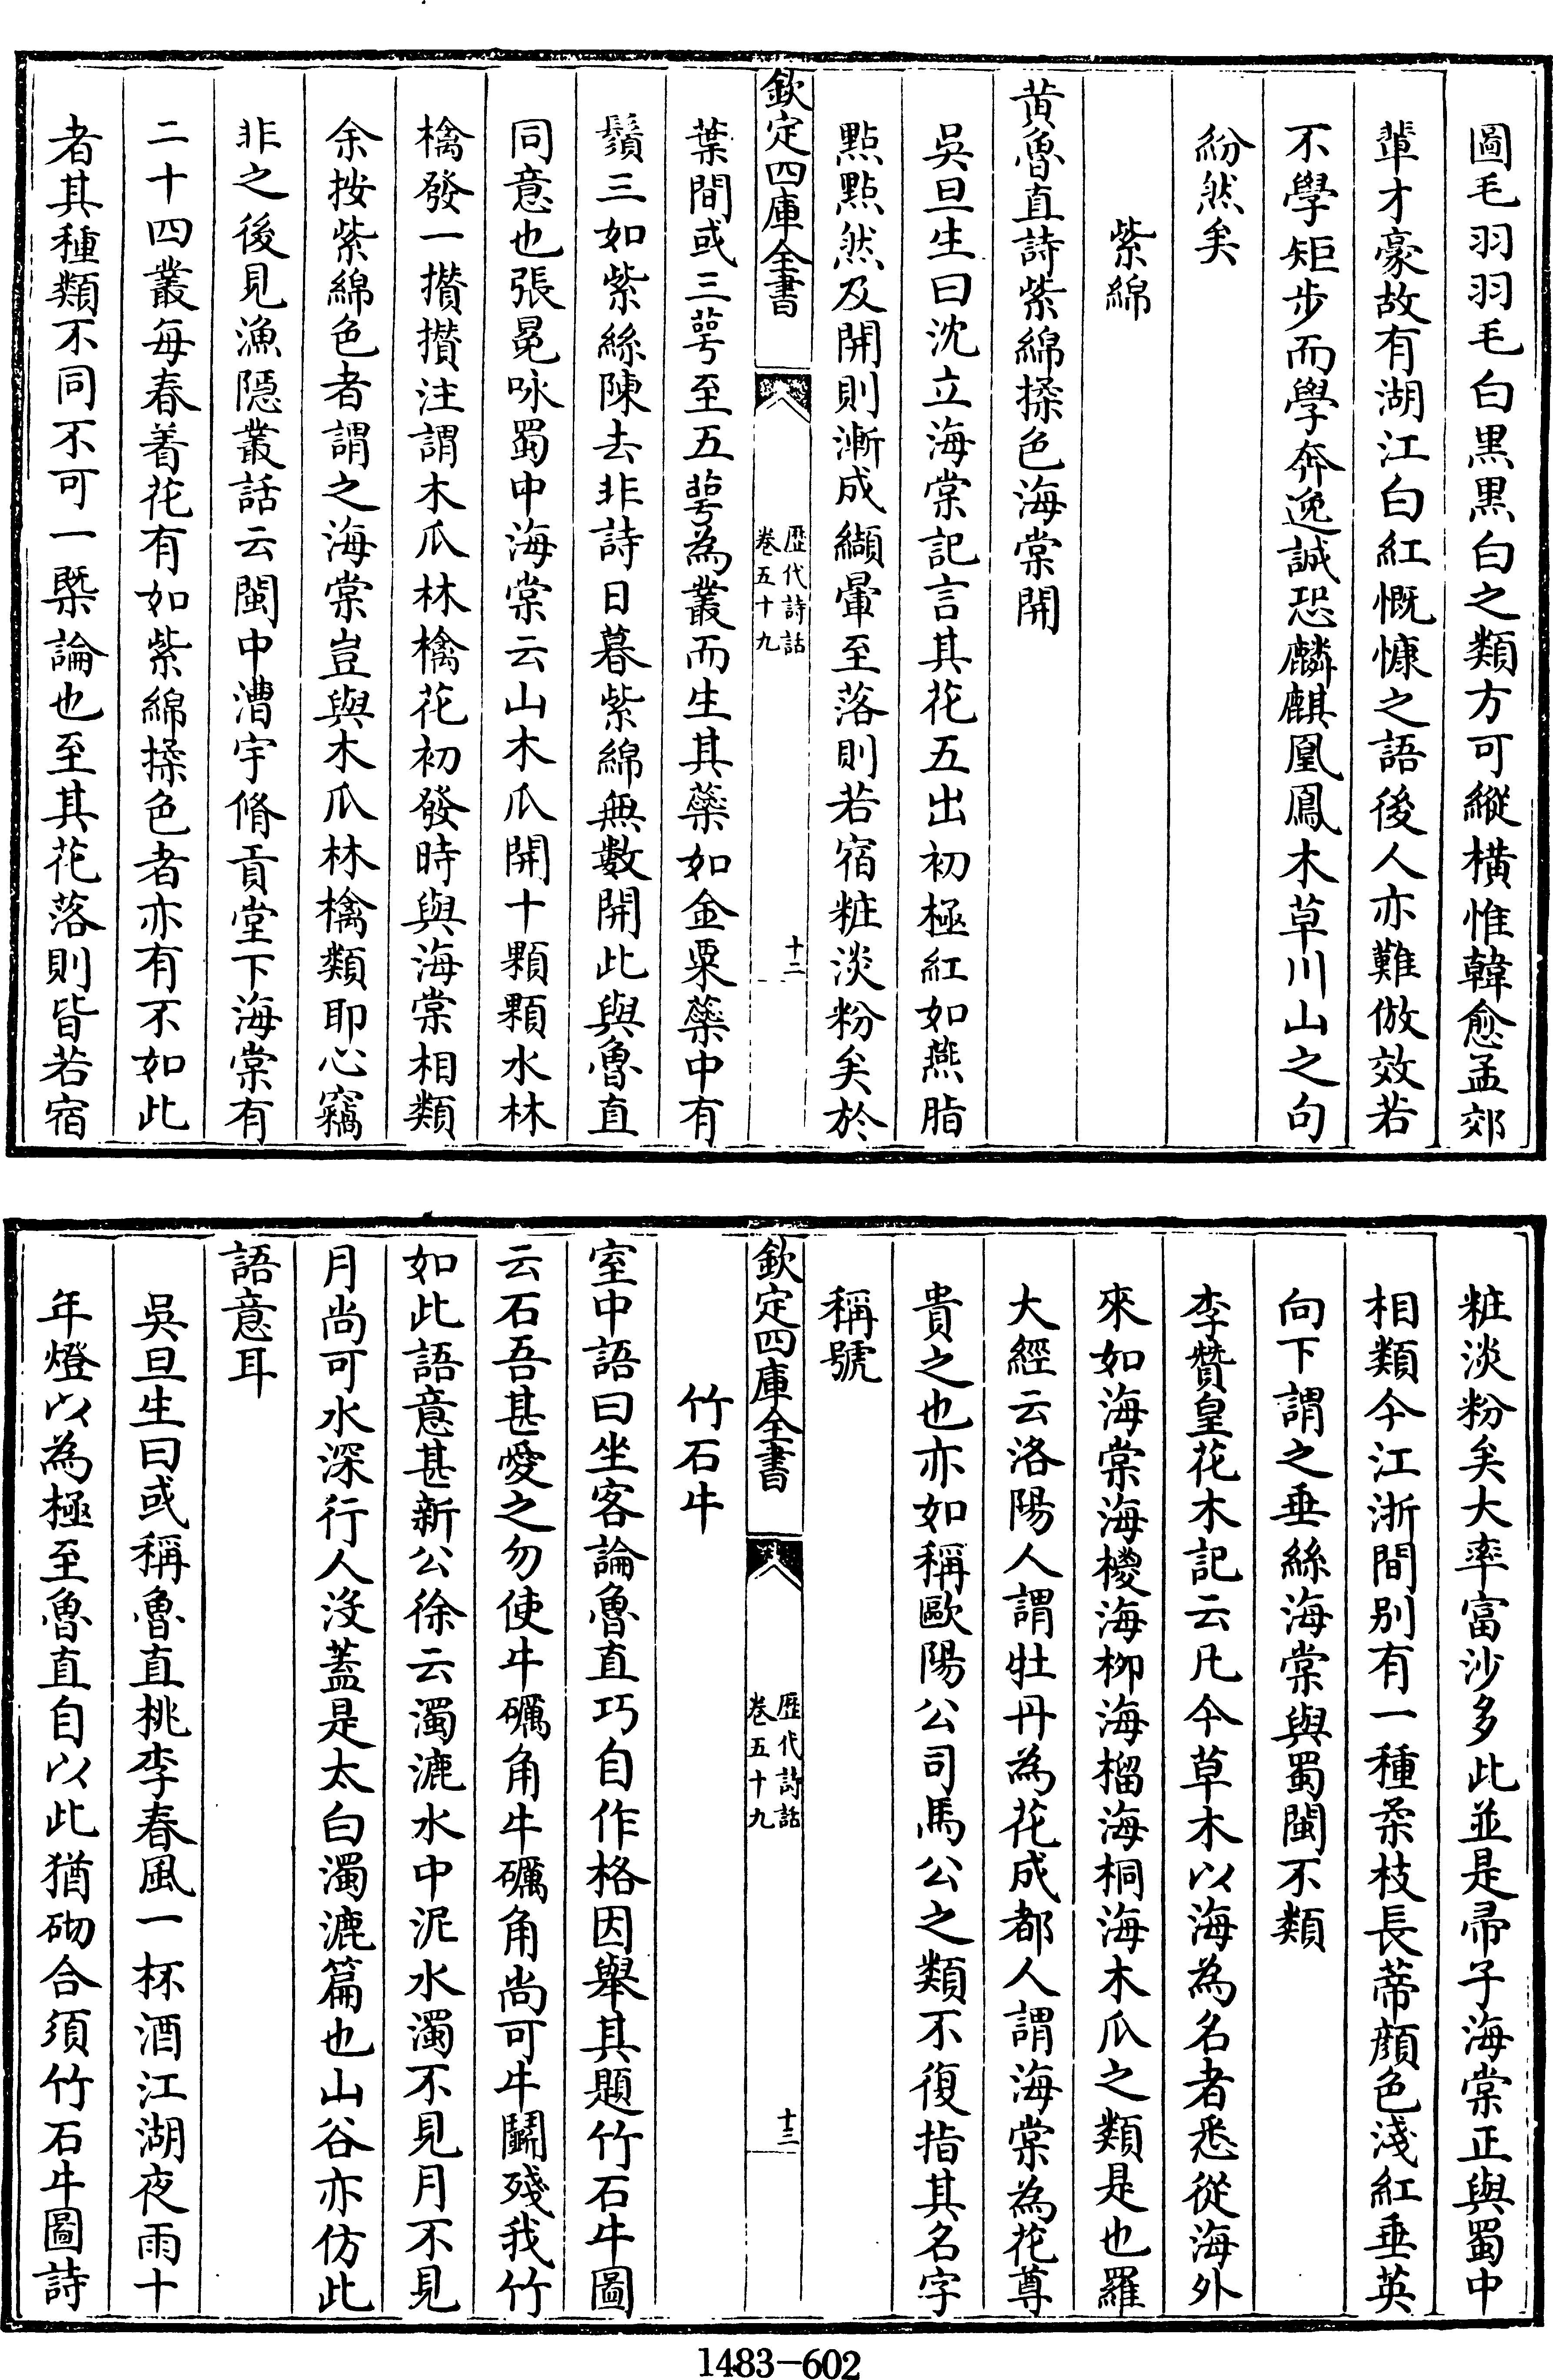 圖毛羽羽毛白黒黒白之類方可縱横惟韓愈孟郊
輩才豪故有湖江白紅慨慷之語後人亦難倣效若
不學矩步而學奔逸誠恐麟麒凰鳳木草川山之句
紛然矣
紫綿
黄魯直詩紫綿揉色海棠開
吳旦生曰沈立海棠記言其花五出初極紅如燕脂
點點然及開則漸成纈暈至落則若宿粧淡粉矣於
欽定四庫全書
歷代詩話
卷五十九
十二
葉間或三萼至五萼為叢而生其蘂如金粟蘂中有
鬚三如紫絲陳去非詩日暮紫綿無數開此與魯直
同意也張冕咏蜀中海棠云山木瓜開十顆顆水林
檎發一攢攢注謂木瓜林檎花初發時與海棠相類
余按紫綿色者謂之海棠豈與木瓜林檎類耶心竊
非之後見漁隱叢話云閩中漕宇脩貢堂下海棠有
二十四叢每春着花有如紫綿揉色者亦有不如此
者其種類不同不可一槩論也至其花落則皆若宿
粧淡粉矣大率富沙多此並是帚子海棠正與蜀中
相類今江浙間别有一種柔枝長蒂顔色淺紅垂英
向下謂之垂絲海棠與蜀閩不類
李贊皇花木記云凡今草木以海為名者悉從海外
來如海棠海㮶海柳海榴海桐海木瓜之類是也羅
大經云洛陽人謂牡丹為花成都人謂海棠為花尊
貴之也亦如稱歐陽公司馬公之類不復指其名字
稱號
欽定四庫全書
歷代詩話
卷五十九
十三
竹石牛
室中語曰坐客論魯直巧自作格因舉其題竹石牛圖
云石吾甚愛之勿使牛礪角牛礪角尚可牛鬬殘我竹
如此語意甚新公徐云濁漉水中泥水濁不見月不見
月尚可水深行人没蓋是太白濁漉篇也山谷亦仿此
語意耳
吳旦生曰或稱魯直桃李春風一杯酒江湖夜雨十
年燈以為極至魯直自以此猶砌合須竹石牛圖詩
1483-602